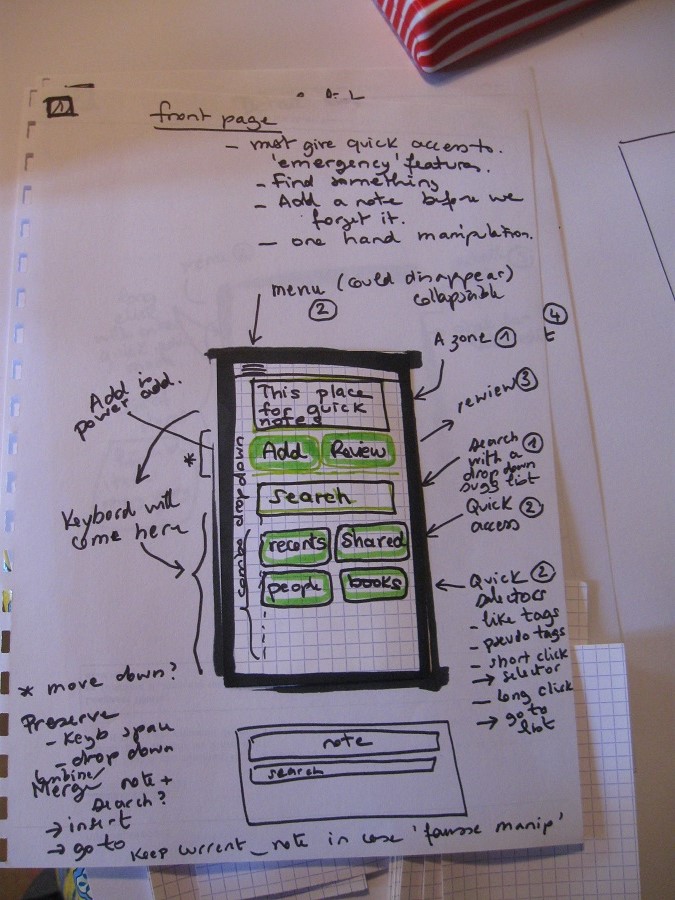 1
front page
- must give quick access to.
'emergency' features.
- Find something
- Add a note before we
forget it.
- one hand manipulation.
menu (could disappear)
② collapsable
④
t
A zone ①
rewiew ③
search ①
with a
drop down
sugg list
Quick ②
access
Quick ②
selectors
- like tags
- pseudo tags
- short click
→ selector
- long click
→ go to
list
Add is
power add.
*
Keybord will
come here
drop down
combo
This place
for quick
notes
Add Review
search
recents shared
people books
* move down?
Preserve
- Keyb space
- drop down
Combine/
Merge note +
search?
→ insert
→ go to
note
search
Keep current_note in case 'fausse manip'